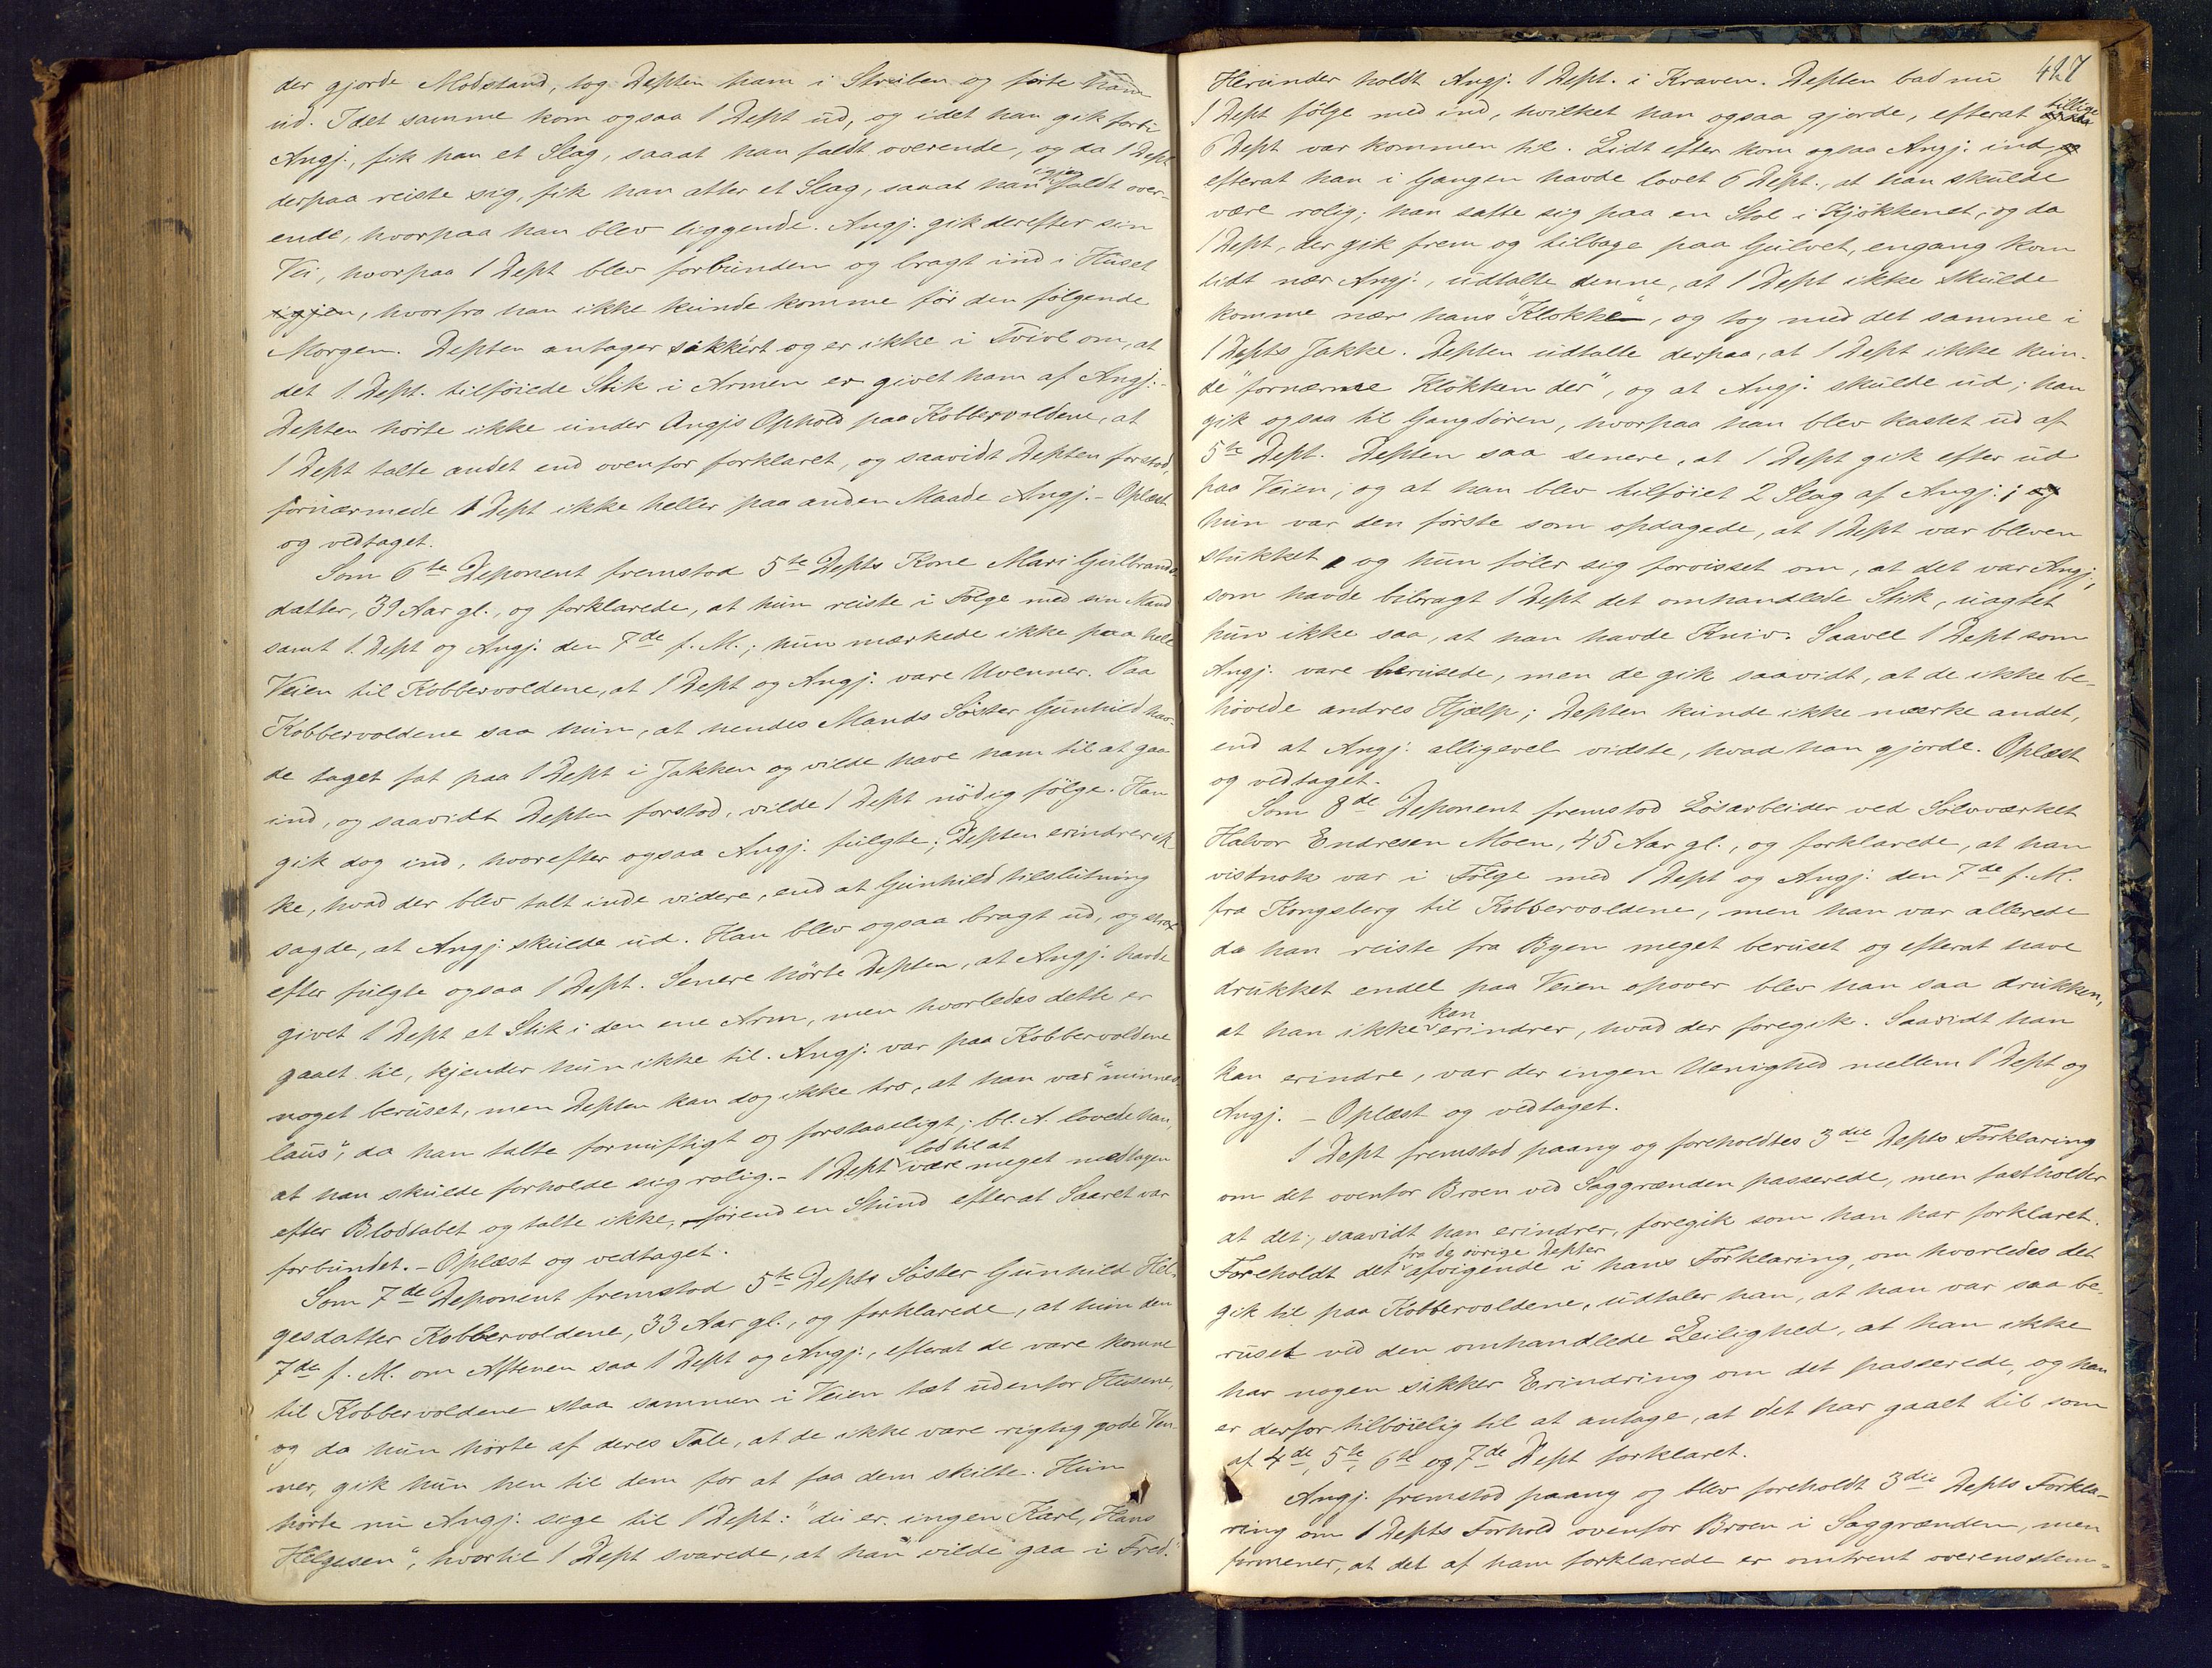 der gjorde Modstand, tog Depten ham i Strilen og førte ham
ud. I det samme kom ogsaa 1 Dept ud, og idet han gik forbi
Angj., fik han et Slag, saaat han faldt overende, og da 1 Dept
derpaa reiste sig, fik han atter et Slag, saaat han igjen faldt over-
ende, hvorpaa han blev liggende. Angj. gik derefter sin
Vei, hvorpaa 1 Dept blev forbunden og bragt ind i Huset
igjen, hvorfra han ikke kunde komme før den følgende
Morgen. Depten antager sikkert og er ikke i Tvivl om, at
det 1 Dept. tilføiede Stik i Armen er givet ham af Angj.-
Depten hørte ikke under Angjs Ophold paa Kobbervoldene, at
1 Dept talte andet end ovenfor forklaret, og saavidt Depten forstod,
fornærmede 1 Dept ikke heller paa anden Maade Angj. - Oplæst
og vedtaget.
Som 6te Deponent fremstod 5te Depts Kone Mari Gulbrands-
datter, 39 Aar gl., og forklarede, at hun reiste i Følge med sin Mand
samt 1. Dept og Angj. den 7de f. M.; hun mærkede ikke paa hele
Veien til Kobbervoldene, at 1 Dept og Angj. vare Uvenner. Paa
Kobbervoldene saa hun, at hendes Mands Søster Gunhild hav-
de taget fat paa 1 Dept i Jakken og vilde have ham til at gaa
ind, og saavidt Depten forstod, vilde 1 Dept nødig følge. Han
gik dog ind, hvorefter ogsaa Angj. fulgte; Depten erindrer ik-
ke, hvad der blev talt inde videre, end at Gunhild tilslutning
sagde, at Angj. skulde ud. Han blev ogsaa bragt ud, og strax
efter fulgte ogsaa 1 Dept. Senere hørte Depten, at Angj. havde
givet 1 Dept et Stik i den ene Arm, men hvorledes dette er
gaaet til, kjender hun ikke til. Angj. var paa Kobbervoldene
noget beruset, men Depten kan dog ikke tro, at han var "minnes-
laus", da han talte fornuftigt og forstaaeligt; bl. A. lovede han,
at han skulde forholde sig rolig. - 1 Dept lod til at være meget medtagen
efter Blodtabet og talte ikke, førend en Stund efterat Saaret var
forbundet. - Oplæst og vedtaget.
Som 7de Deponent fremstod 5te Depts Søster Gunhild Hel-
gesdatter Kobbervoldene, 33 Aar gl., og forklarede, at hun den
7de f. M. om Aftenen saa 1 Dept og Angj., efterat de vare komne
til Kobbervoldene staa sammen i Veien tæt udenfor Husene,
og da hun hørte af deres Tale, at de ikke vare rigtig gode Ven-
ner, gik hun hen til dem for at faa dem skilte. Hun
hørte nu Angj. sige til 1 Dept: "du er ingen Karl, Hans
Helgesen", hvortil 1 Dept svarede, at han "vilde gaa i Fred."
427
Herunder holdt Angj. 1 Dept. i Kraven. Depten bad nu
1 Dept følge med ind, hvilket han ogsaa gjorde, efterat tillige
6 Dept var kommen til. Lidt efter kom ogsaa Angj. ind, og
efterat han i Gangen havde lovet 6 Dept., at han skulde
være rolig; han satte sig paa en Stol i Kjøkkenet, og da
1 Dept, der gik frem og tilbage paa Gulvet, engang kom
lidt nær Angj., udtalte denne, at 1 Dept ikke skulde
komme nær hans "Klokke", og tog med det samme i
1 Depts Jakke. Depten udtalte derpaa, at 1 Dept ikke kun-
de "fornærme Klokken der", og at Angj. skulde ud; han
gik ogsaa til Gangdøren, hvorpaa han blev kastet ud af
5te Dept. Depten saa senere, at 1 Dept gik efter ud
paa Veien, og at han blev tilføiet 2 Slag af Angj.; og
hun var den første som opdagede, at 1 Dept var bleven
stukket, og hun føler sig forvisset om, at det var Angj,
som havde bibragt 1 Dept det omhandlede Stik, uagtet
hun ikke saa, at han havde Kniv. Saavel 1 Dept som
Angj. vare berusede, men de gik saavidt, at de ikke be-
høvede andres Hjælp; Depten kunde ikke mærke andet,
end at Angj. alligevel vidste, hvad han gjorde. Oplæst
og vedtaget.
Som 8de Deponent fremstod Løsarbeider ved Sølvværket
Halvor Endresen Moen, 45 Aar gl., og forklarede, at han
vistnok var i Følge med 1 Dept og Angj. den 7de f. M.
fra Kongsberg til Kobbervoldene, men han var allerede
da han reiste fra Byen meget beruset og efterat have
drukket endel paa Veien opover blev han saa drukken,
at han ikke kan erindrer, hvad der foregik. Saavidt han
kan erindre, var der ingen Uenighed mellem 1 Dept og
Angj. - Oplæst og vedtaget.
1 Dept fremstod paany og foreholdtes 3die Depts Forklaring
om det ovenfor Broen ved Saggrænden passerede, men fastholder
at det, saavidt han erindrer, foregik som han har forklaret.
Foreholdt det fra de øvrige Depter afvigende i hans Forklaring, om hvorledes det
gik til paa Kobbervoldene, udtaler han, at han var saa be-
ruset ved den omhandlede Leilighed, at han ikke
har nogen sikker Erindring om det passerede, og han
er derfor tilbøielig til at antage, at det har gaaet til som
af 4de, 5te, 6te og 7de Dept forklaret.
Angj. fremstod paany og blev foreholdt 3die Depts Forkla-
ring om 1 Depts Forhold ovenfor Broen i Saggrænden, men
formener, at det af ham forklarede er omtrent overensstem-